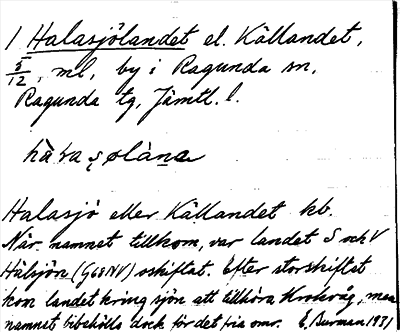 1 Halasjölandet el. Källandet,
5/12, ml, by i Ragunda sn,
Ragunda tg, Jämtl. l.
Halasjö eller Källandet kb.
När namnet tillkom, var landet S och V
Hälsjön (G68NV) oskiftat. Efter storskiftet
kom landet kring sjön att tillhöra Krokvåg, men
namnet bibehölls dock för det fria omr. E. Burman 1931